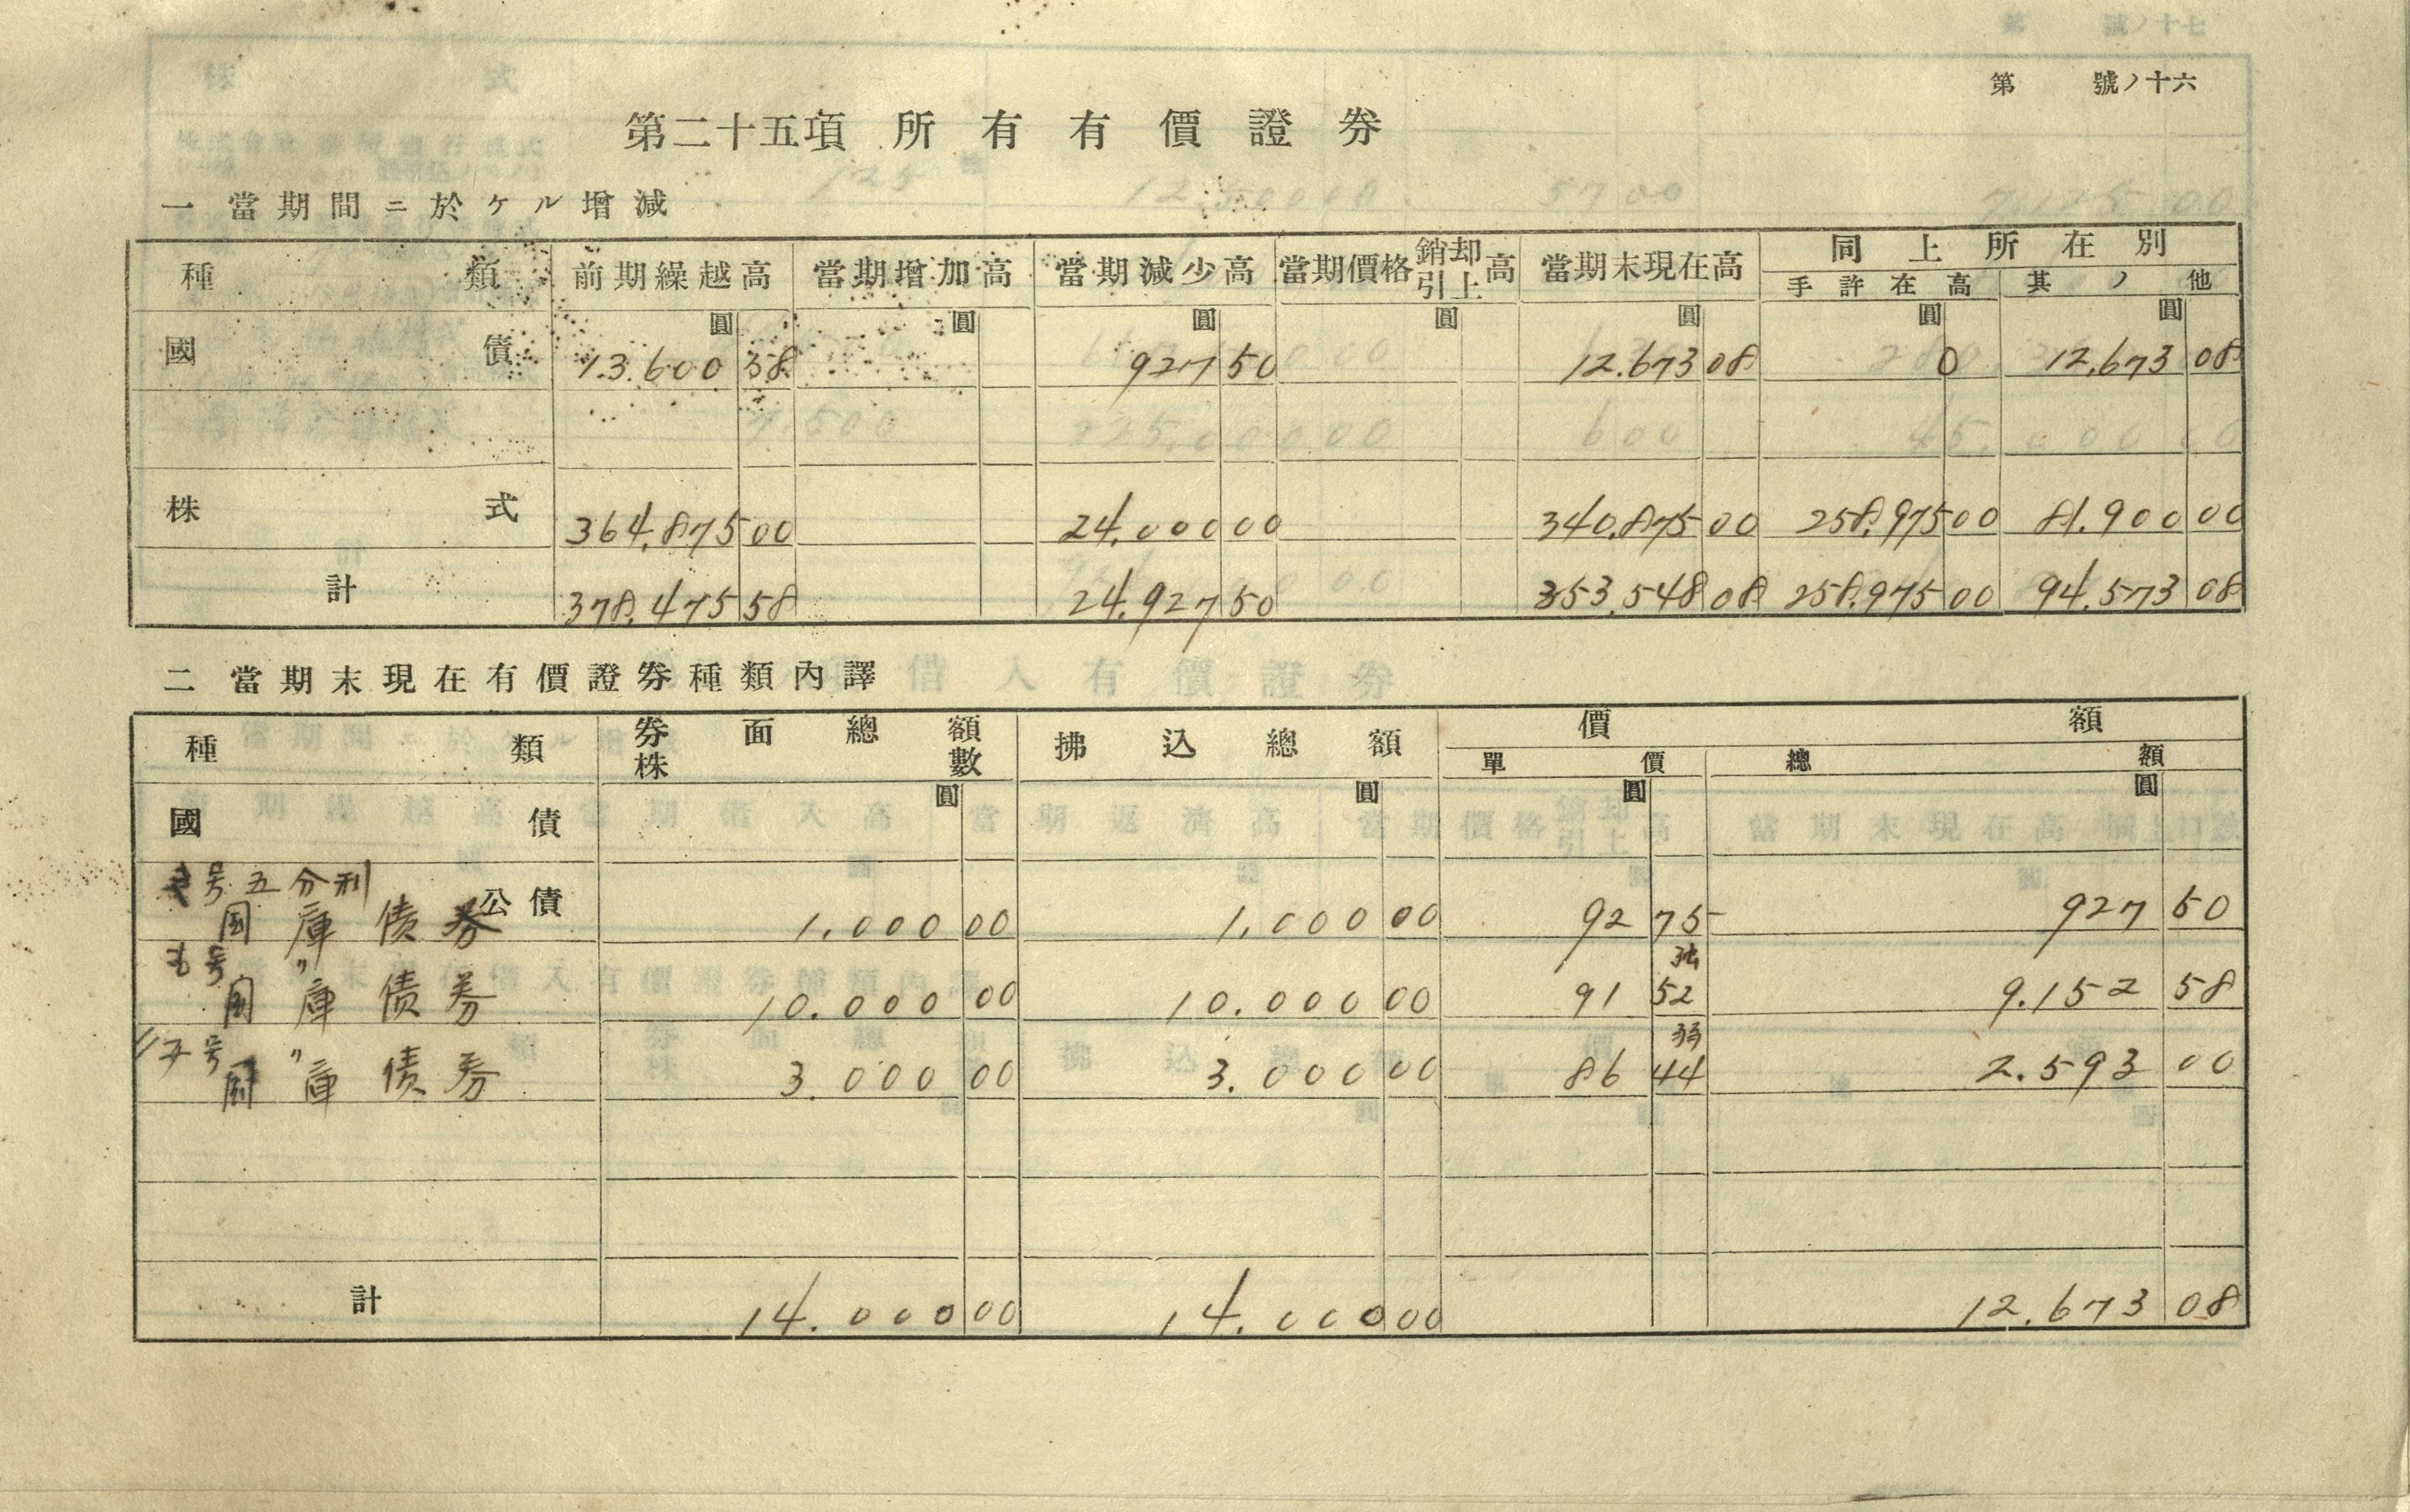 第 號ノ十六
第二十五項 所有有價證券
一 當期間ニ於ケル增減
種類 前期繰越高 當期增加高 當期減少高 當期價格銷却引上高 當期末現在高 同上所在別
手許在高 其ノ他
圓 圓 圓 圓 圓 圓 圓
國債 13.600 58 927 50 12.673 08 0 12,673 08
株式 364.875 00 24.000 00 340.875 00 258.975 00 81.900 00
計 378.475 58 24.927 50 353.548 08 258.975 00 94.573 08
二 當期末現在有價證券種類內譯
種類 券面總額 株數 拂込總額 價額
單價 總額
圓 圓 圓 圓
國債
号五分利
公債
国庫債券 1.000 00 1.000 00 92 75 927 50
号 〃 強
国庫債券 10.000 00 10.000 00 91 52 9.152 58
号 〃 弱
国庫債券 3.000 00 3.000 00 86 44 2.593 00
計 14.000 00 14.000 00 12.673 08